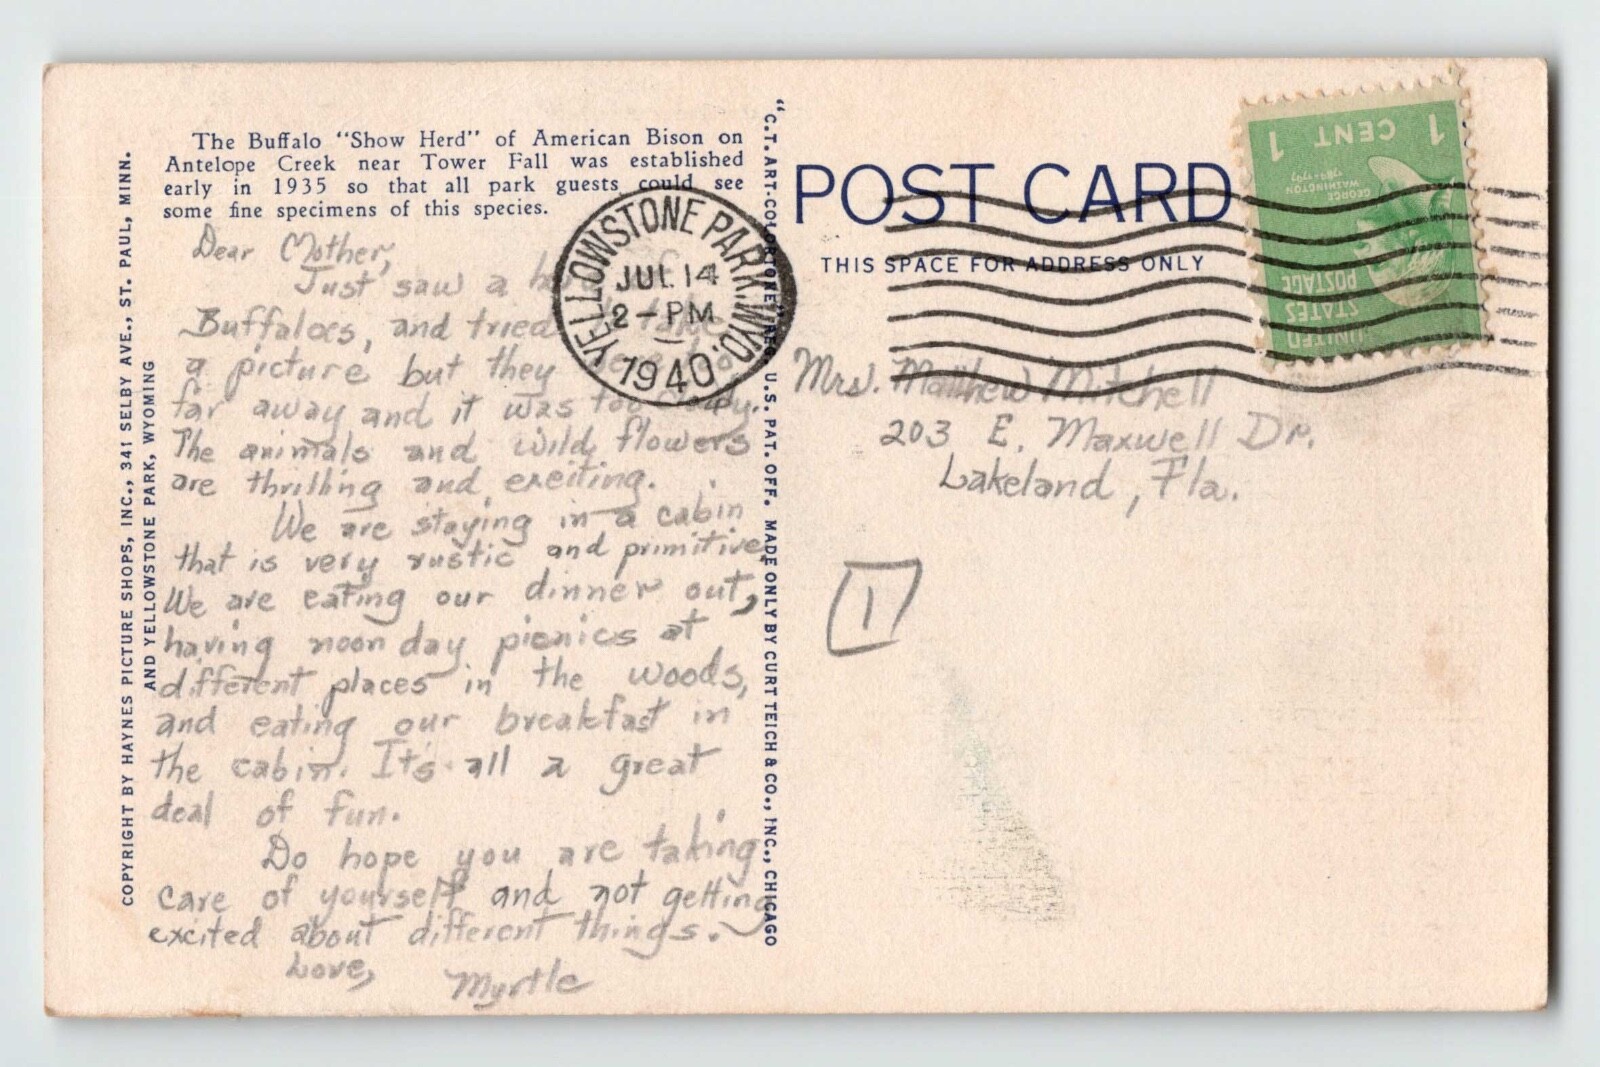 The Buffalo "Show Herd" of American Bison on
Antelope Creek near Tower Fall was established
early in 1935 so that all park guests could see
some fine specimens of this species.
Dear Mother,
Just saw a
Buffaloes, and tried to take
a picture but they were too
far away and it was too cloudy.
The animals and wild flowers
are thrilling and exciting.
We are staying in a cabin
that is very rustic and primitive.
We are eating our dinner out,
having noon day picnics at
different places in the woods,
and eating our breakfast in
the cabin. It's all a great
deal of fun.
Do hope you are taking
care of yourself and not getting
excited about different things.
Love,
Myrtle
COPYRIGHT BY HAYNES PICTURE SHOPS, INC., 341 SELBY AVE., ST. PAUL, MINN.
AND YELLOWSTONE PARK, WYOMING
"C.T. ART-COLORTONE" REG. U.S. PAT. OFF. MADE ONLY BY CURT TEICH & CO., INC., CHICAGO
YELLOWSTONE PARK, WYO.
JUL 14
2-PM
1940
POST CARD
THIS SPACE FOR ADDRESS ONLY
Mrs. Matthew Mitchell
203 E. Maxwell Dr.
Lakeland, Fla.
1
UNITED
STATES
POSTAGE
GEORGE
WASHINGTON
1789-1797
1 CENT 1